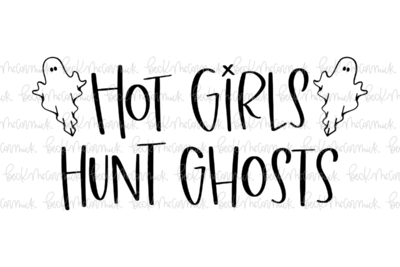 HOT GIRLS
HUNT GHOSTS